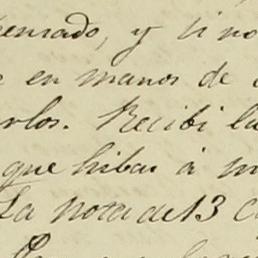 pensado, y si no
en manos de
rlos. Recibi la
que hibas á
La nota de 13